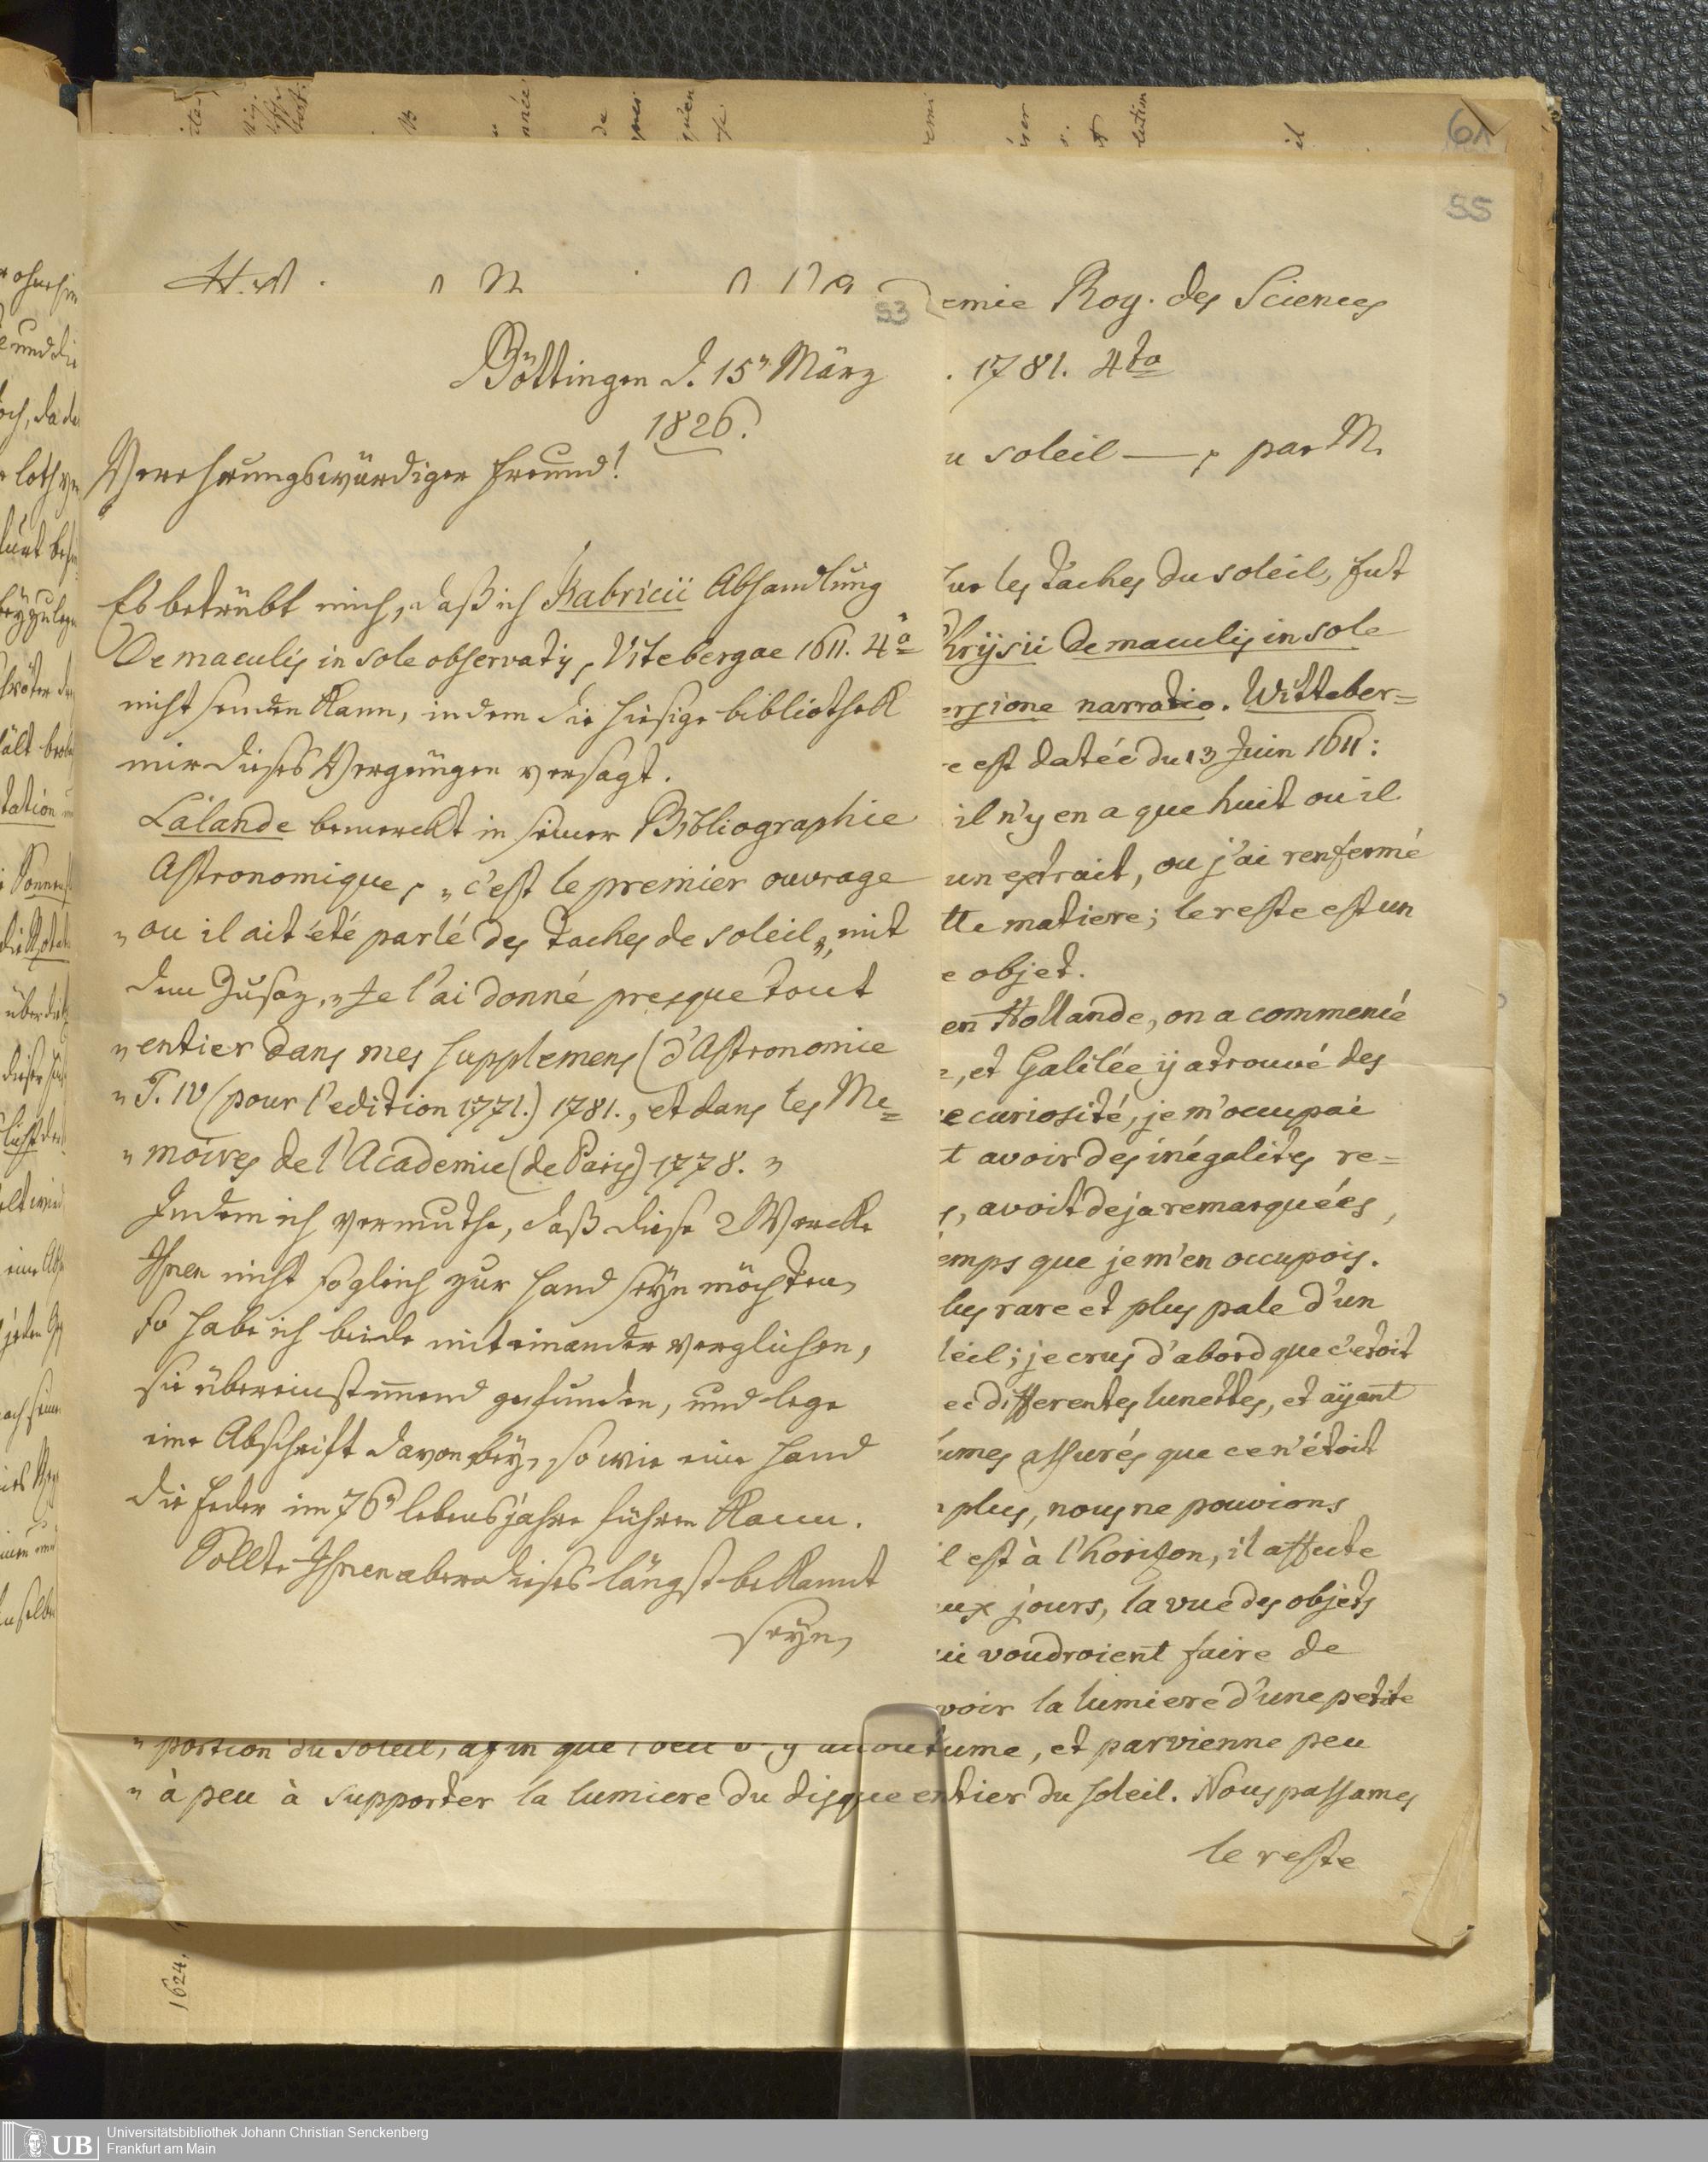 61
55
53
Göttingen d. 15n März
1826.
Verehrungswürdiger Freund!
Es betrübt mich, daß ich Fabricii Abhandlung
De maculis in sole observatis, Vitebergae 1611. 4o
nicht senden kann, indem die hiesige bibliothek
mir dieses Vergnügen versagt.
Lalande bemerckt in seiner Bibliographie
Astronomique, „c'est le premier ouvrage
„ou il ait été parlé des taches de soleil„, mit
dem Zusaz, „Je l'ai donné presque tout
„entier dans mes supplemens (d'Astronomie
„T. IV (pour l'edition 1771.) 1781., et dans les Me=
„moires de l'Academie (de Paris) 1778.„
Indem ich vermuthe, daß diese 2 Wercke
Ihnen nicht sogleich zur Hand seyn möchten,
so habe ich beide miteinander verglichen,
sie übereinstimmend gefunden, und lege
eine Abschrift davon bey, so wie eine Hand
die Feder im 76n lebensjahre führen kann.
Sollte Ihnen aber dieses längst bekannt
seyn,
emie Roy. des Sciences
. 1781. 4to
u soleil —, par M.
sur les taches du soleil, fut
Phrysii De maculis in sole
ersione narratio. Witteber=
e est datée du 13 Juin 1611:
il n'y en a que huit ou il
un extrait, ou j'ai renfermé
tte matiere; le reste est un
e objet.
en Hollande, on a commencé
e, et Galilée y a trouvé des
e curiosité, je m'occupai
t avoir des inégalités re=
s, avoit deja remarquées,
emps que je m'en occupois.
lus rare et plus pale d'un
leil; je crus d'abord que c'etoit
ec differentes lunettes, et aÿant
umes assurés que ce n'étoit
plus, nous ne pouvions
l est à l'horizon, il affecte
eux jours, la vue des objets
ui voudroient faire de
voir la lumiere d'une petite
„portion du soleil, afin que l'oeil s'y accoutume, et parvienne peu
„à peu à supporter la lumiere du disque entier du soleil. Nous passames
le reste
1624.
UB
Universitätsbibliothek Johann Christian Senckenberg
Frankfurt am Main